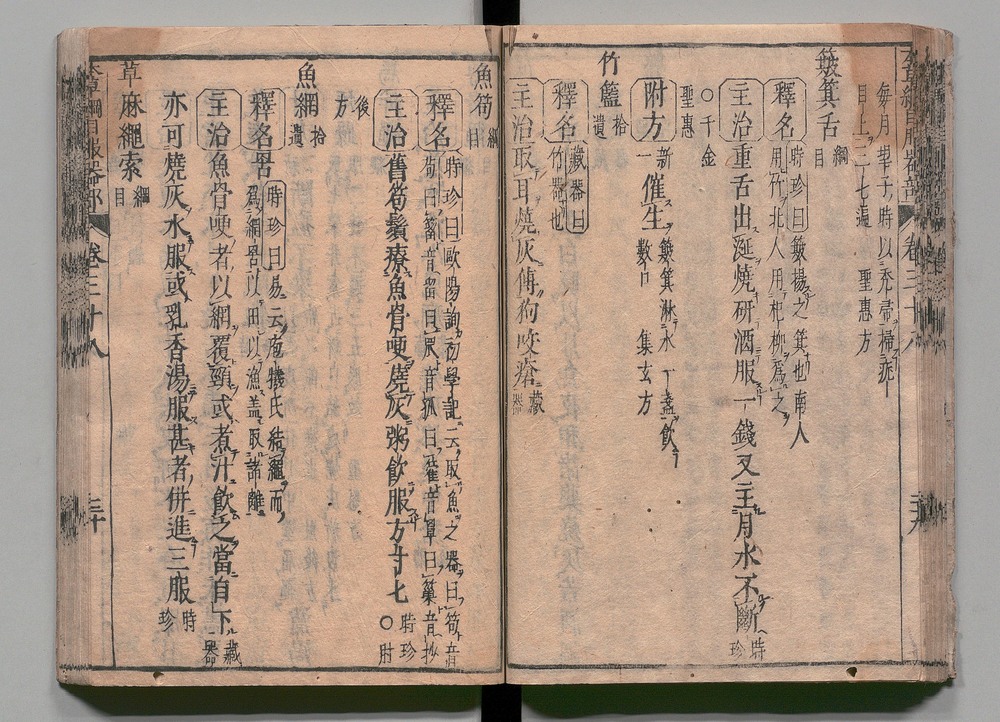 每月
目上三七遍 聖惠方
簸箕舌 綱目
釋名 時珍曰簸揚之箕也南人
用竹北人用杞柳爲之
主治重舌出涎燒研酒服一錢又主月水不斷 時珍
○千金
聖惠
附方 新一 催生 簸箕淋水一盞飲
數口 集玄方
竹籃 拾遺
釋名 藏器曰
竹器也
主治取耳燒灰傅狗咬瘡 藏器
魚笱 綱目
釋名 時珍曰歐陽詢初學記云取魚之器曰笱音
苟曰罶音留曰罛音孤曰䈇音罩曰䈰音抄
主治舊笱鬚療魚骨哽燒灰粥飲服方寸匕 時珍○肘
後方
魚網 拾遺
釋名罟 時珍曰易云庖犧氏結繩而
爲網罟以田以漁蓋取諸離
主治魚骨哽者以網覆頸或煮汁飲之當自下 藏器
亦可燒灰水服或乳香湯服甚者併進三服 時珍
草麻繩索 綱目
本草綱目服器部 卷三十八 三十